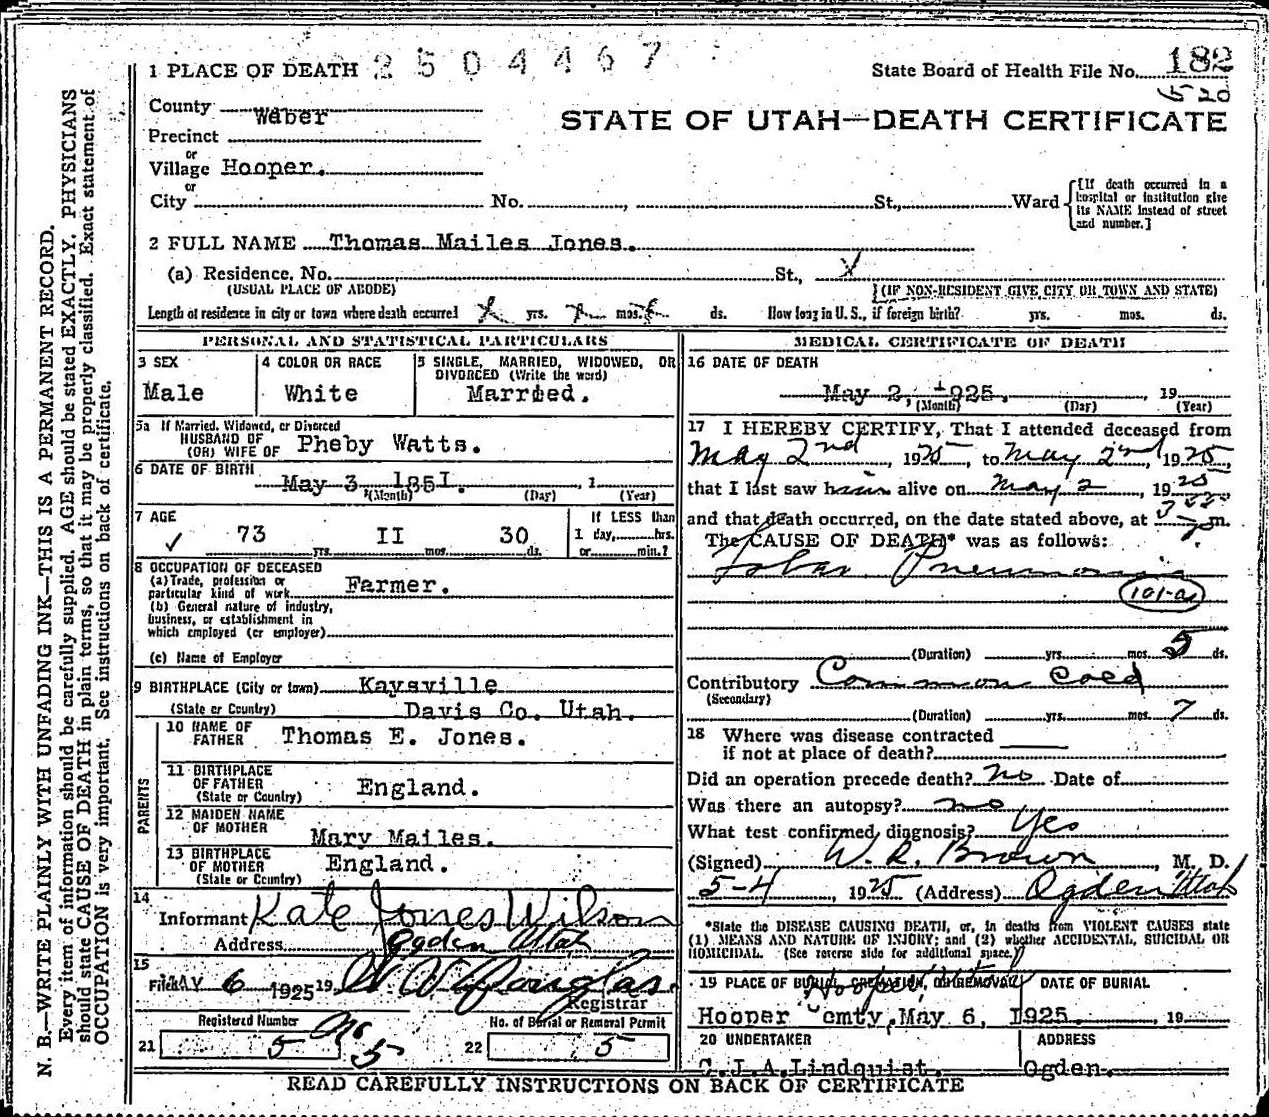 1 PLACE OF DEATH 2504467
State Board of Health File No. 182
520
County Weber
STATE OF UTAH—DEATH CERTIFICATE
Precinct
or
Village Hooper.
or
City No. , St., Ward {[If death occurred in a hospital or institution give its NAME instead of street and number.]
2 FULL NAME Thomas Mailes Jones.
(a) Residence. No. St.,
(USUAL PLACE OF ABODE) (IF NON-RESIDENT GIVE CITY OR TOWN AND STATE)
Length of residence in city or town where death occurred yrs. mos. ds. How long in U. S., if foreign birth? yrs. mos. ds.
PERSONAL AND STATISTICAL PARTICULARS
3 SEX
Male
4 COLOR OR RACE
White
5 SINGLE, MARRIED, WIDOWED, OR
DIVORCED (Write the word)
Married.
5a If Married, Widowed, or Divorced
HUSBAND OF
(OR) WIFE OF Pheby Watts.
6 DATE OF BIRTH
May 3, 1851.
(Month) (Day) (Year)
7 AGE
73 yrs. II mos. 30 ds.
If LESS than
1 day, hrs.
or min.?
8 OCCUPATION OF DECEASED
(a) Trade, profession or
particular kind of work Farmer.
(b) General nature of industry,
business, or establishment in
which employed (or employer)
(c) Name of Employer
9 BIRTHPLACE (City or town) Kaysville
(State or Country) Davis Co. Utah.
PARENTS
10 NAME OF
FATHER Thomas E. Jones.
11 BIRTHPLACE
OF FATHER England.
(State or Country)
12 MAIDEN NAME
OF MOTHER Mary Mailes.
13 BIRTHPLACE
OF MOTHER England.
(State or Country)
14
Informant Kate Jones Wilson
Address Ogden Utah
15
Filed MAY 6 1925 19
Registrar
Registered Number
21 5
No 5
No. of Burial or Removal Permit
22 5
MEDICAL CERTIFICATE OF DEATH
16 DATE OF DEATH
May 2, 1925. 19
(Month) (Day) (Year)
17 I HEREBY CERTIFY, That I attended deceased from
May 2nd, 1925, to May 2nd, 1925,
that I last saw him alive on May 2, 1925
and that death occurred, on the date stated above, at m.
The CAUSE OF DEATH* was as follows:
Lobar Pneumonia
101-a
(Duration) yrs. mos. 5 ds.
Contributory Common Cold
(Secondary)
(Duration) yrs. mos. 7 ds.
18 Where was disease contracted
if not at place of death?
Did an operation precede death? no Date of
Was there an autopsy? no
What test confirmed diagnosis? Yes
(Signed) W. R. Brown, M. D.
5-4, 1925 (Address) Ogden Utah
*State the DISEASE CAUSING DEATH, or, in deaths from VIOLENT CAUSES state
(1) MEANS AND NATURE OF INJURY; and (2) whether ACCIDENTAL, SUICIDAL OR
HOMICIDAL. (See reverse side for additional space.)
19 PLACE OF BURIAL, CREMATION, OR REMOVAL DATE OF BURIAL
Hooper Cemty, May 6, 1925. , 19
20 UNDERTAKER ADDRESS
C.J.A.Lindquist. Ogden.
READ CAREFULLY INSTRUCTIONS ON BACK OF CERTIFICATE
N. B.—WRITE PLAINLY WITH UNFADING INK—THIS IS A PERMANENT RECORD.
Every item of information should be carefully supplied. AGE should be stated EXACTLY. PHYSICIANS
should state CAUSE OF DEATH in plain terms, so that it may be properly classified. Exact statement of
OCCUPATION is very important. See instructions on back of certificate.